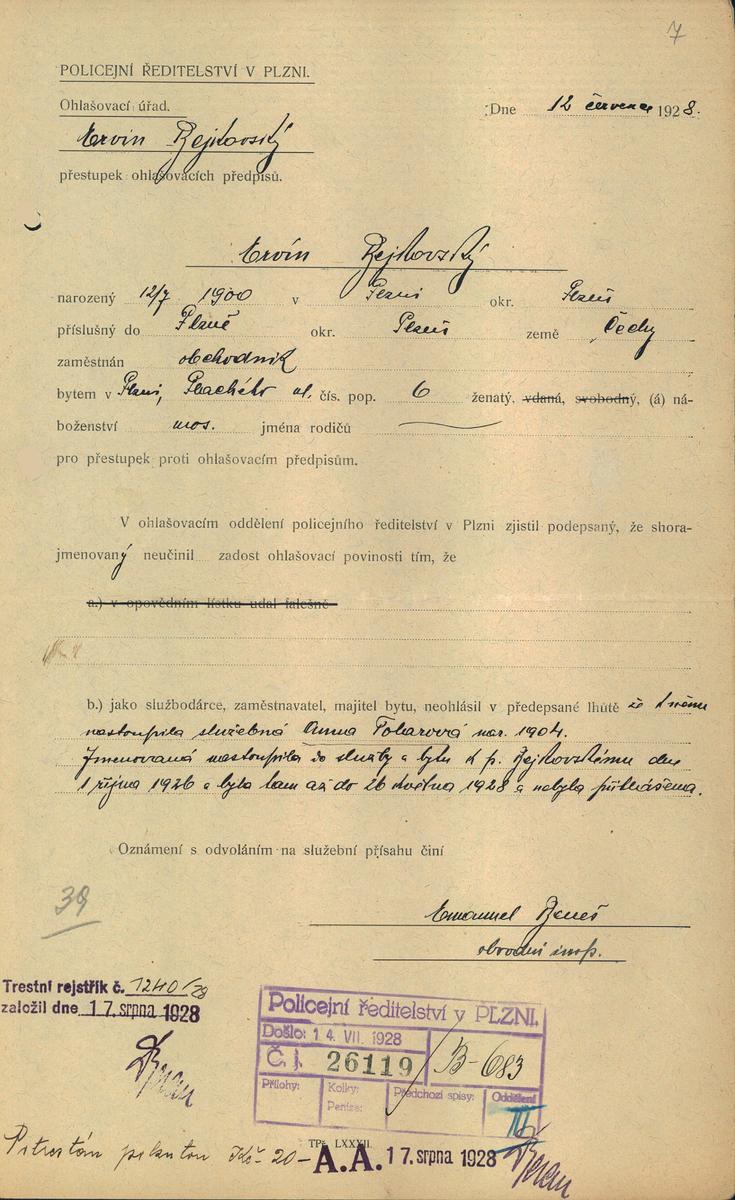 7
POLICEJNÍ ŘEDITELSTVÍ V PLZNI.
Ohlašovací úřad.
Dne 12 července 1928.
Ervin Rejkovský
přestupek ohlašovacích předpisů.
Ervín Rejkovský
narozený 12/7 1900 v Plzni okr. Plzeň
příslušný do Plzně okr. Plzeň země Čechy
zaměstnán obchodník
bytem v Plzni, Plachého ul. čís. pop. 6 ženatý, vdaná, svobodný, (á) ná-
boženství mos. jména rodičů
pro přestupek proti ohlašovacím předpisům.
V ohlašovacím oddělení policejního ředitelství v Plzni zjistil podepsaný, že shora-
jmenovaný neučinil zadost ohlašovací povinosti tím, že
a.) v opovědním lístku udal falešně
b.) jako službodárce, zaměstnavatel, majitel bytu, neohlásil v předepsané lhůtě že k němu
nastoupila služebná Anna nar. 1904.
Jmenovaná nastoupila do služby a bytu k p. Rejkovskému dne
1 října 1926 a byla tam až do 26 května 1928 a nebyla přihlášena.
Oznámení s odvoláním na služební přísahu činí
39
Emanuel Beneš
obvodní insp.
Trestní rejstřík č. 1240/28
založil dne 17. srpna 1928
Policejní ředitelství v PLZNI.
Došlo: 14. VII. 1928
Č. j. 26119 / B-683
Přílohy: Kolky: Předchozí spisy: Oddělení
Peníze:
III
TPř. LXXXII.
Potrestán pokutou Kč 20- A.A. 17. srpna 1928